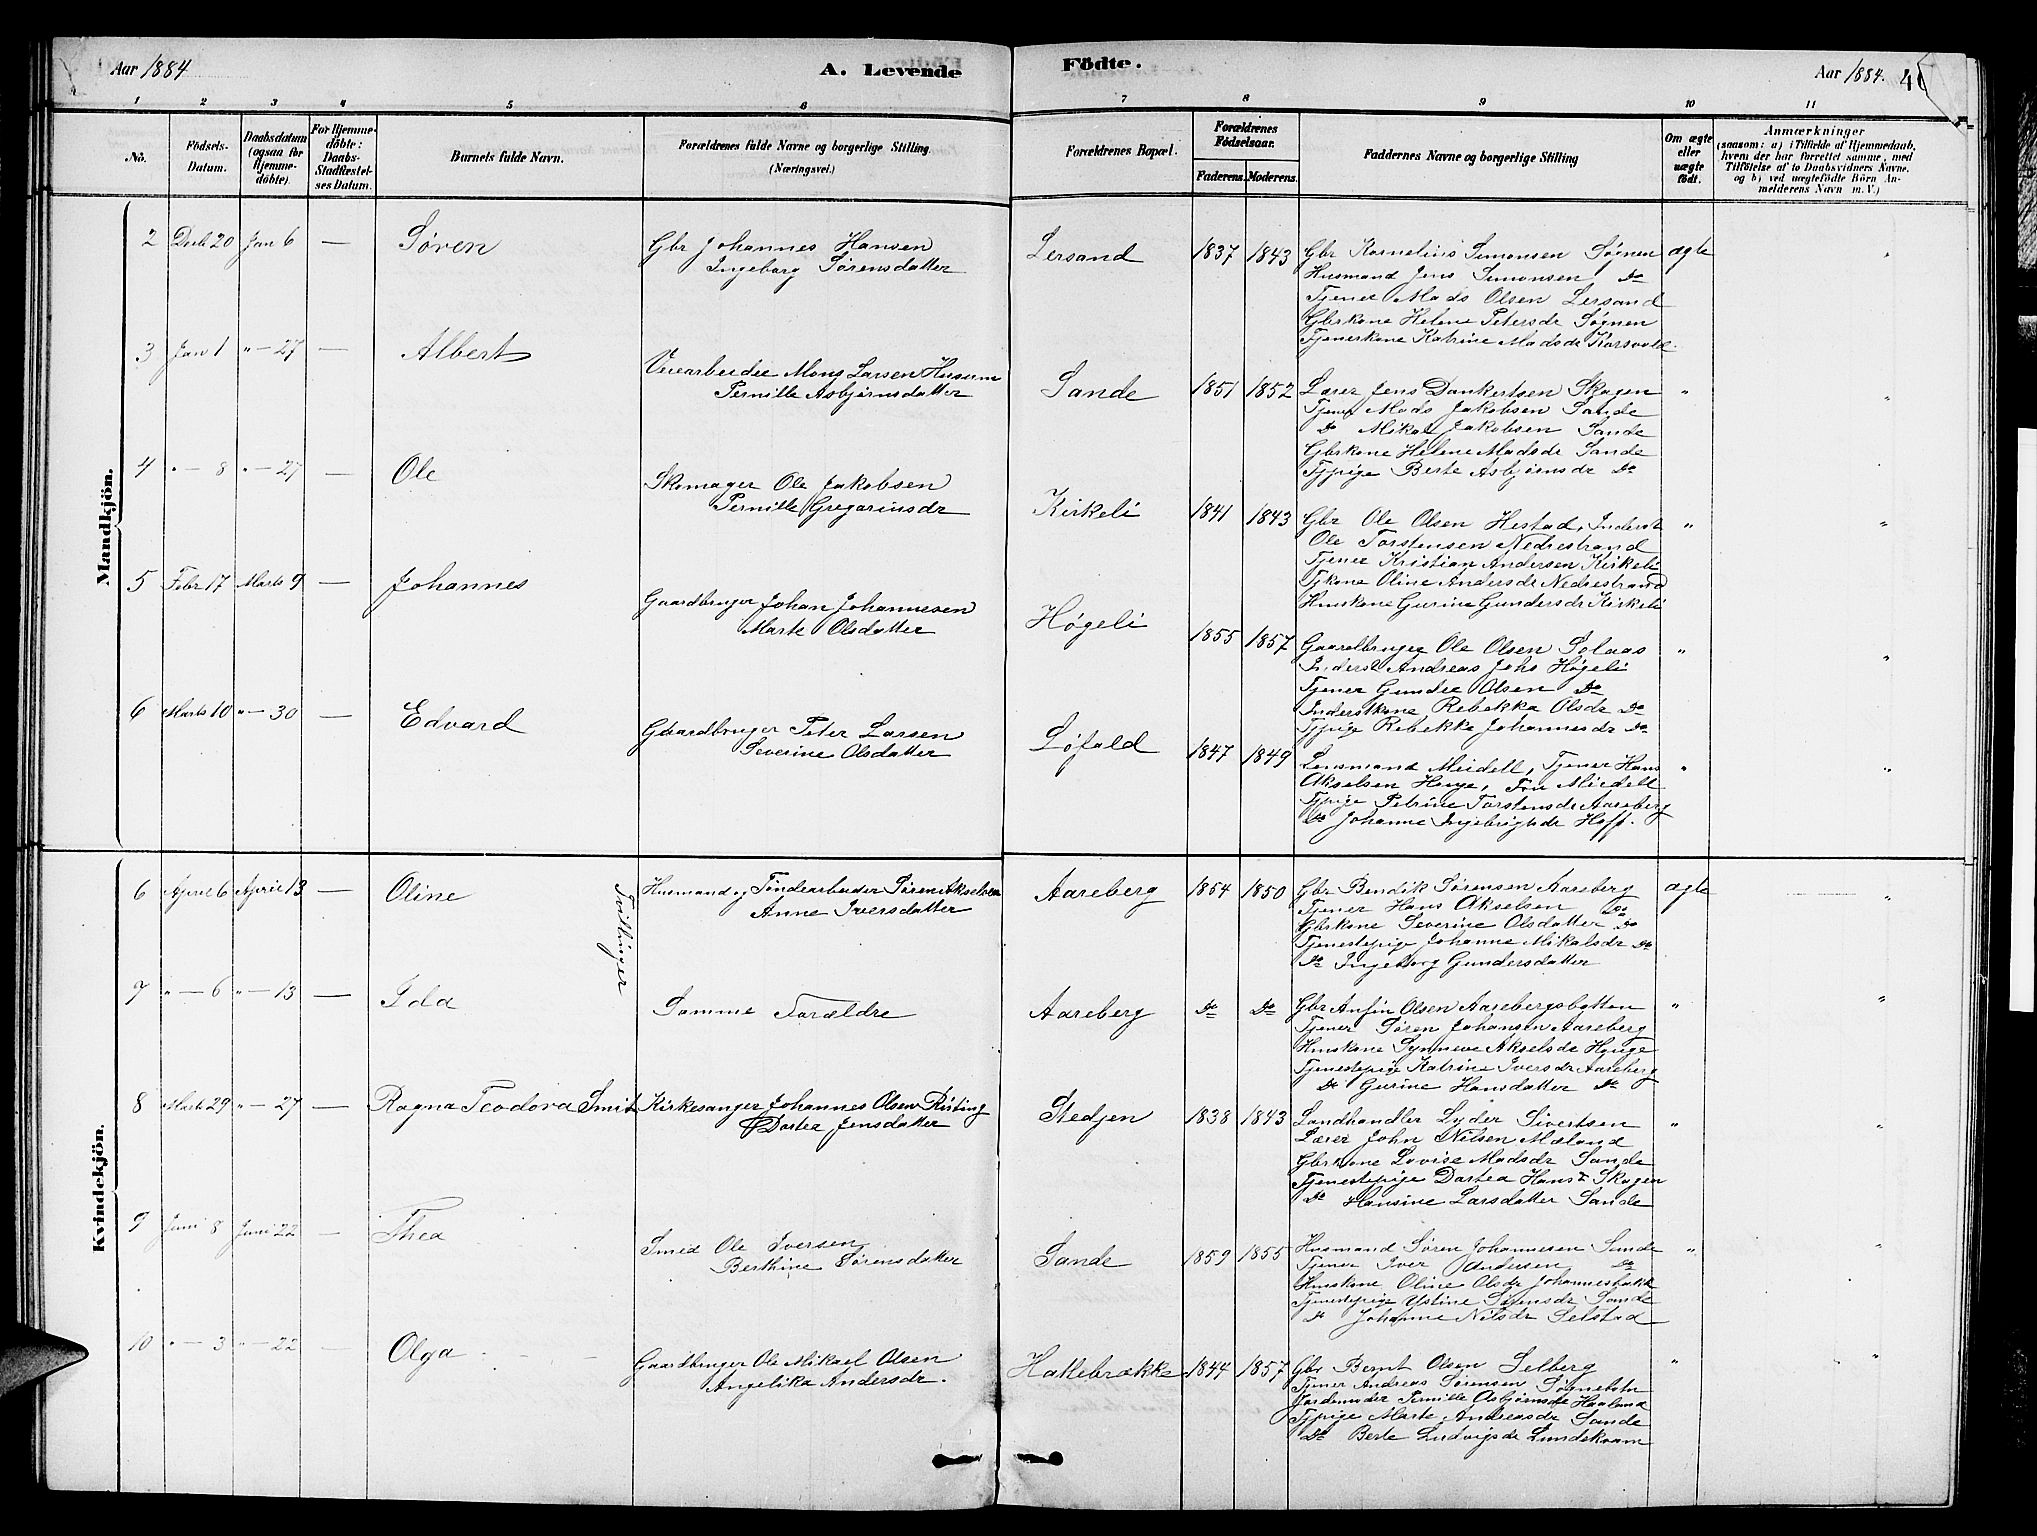 Aar 1884
A. Levende
Födte.
Aar 1884.
1 2 3 4 5 6 7 8 9 10 11
No.
Födsels-Datum.
Daabsdatum (ogsaa for Hjemmedöbte).
For Hjemmedöbte: Daabs-Stadfæstelses Datum.
Barnets fulde Navn.
Forældrenes fulde Navne og borgerlige Stilling (Næringsvei.)
Forældrenes Bopæl.
Forældrenes Födselsaar.
Faderens. Moderens.
Faddernes Navne og borgerlige Stilling
Om ægte eller uægte födt.
Anmærkninger
(saasom: a) i Tilfælde af Hjemmedaab, hvem der har forrettet samme, med Tilföielse af to Daabsvidners Navne, og b) ved uægtefödte Börn Anmelderens Navn m. V.)
Mandkjön.
2 Decb 20 Jan 6 — Søren
Gbr Johannes Hansen
Ingeborg Sørensdatter
Lersand 1837 1843
Gbr Kornelius Simonsen Søgnen ægte
Husmand Jens Simonsen Do
Tjener Mads Olsen Lersand
Gbrkone Helene Petersdr Søgnen
Tjenerkone Katrine Madsdr Korsvold
3 Jan 1 " — 27 — Albert
Veiarbeider Mons Larsen Husum
Pernille Asbjørnsdatter
Sande 1851 1852
Lærer Jens Dankertsen Skagen "
Tjener Mads Jakobsen Sande
Do Mikal Jakobsen Sande
Gbrkone Helene Madsdr Sande
Tjpige Berte Asbjørnsdr Do
4 " — 8 " — 27 — Ole
Skomager Ole Jakobsen
Pernille Gregoriusdr
Kirkeli 1841 1843
Gbr Ole Olsen Hestad, Inderst "
Ole Torstensen Nedrestrand
Tjener Kristian Andersen Kirkeli
Tjkone Oline Andersdr Nedrestrand
Huskone Gurine Gundersdr Kirkeli
5 Febr 17 Marts 9 — Johannes
Gaardbruger Johan Johannesen
Marte Olsdatter
Høgeli 1855 1857
Gaardbruger Ole Olsen Solaas "
Inderst Andreas Johs Høgeli
Tjener Gunder Olsen Do
Inderstkone Rebekka Olsdr Do
Tjpige Rebekka Johannesdr Do
6 Marts 10 " — 30 — Edvard
Gaardbruger Peter Larsen
Severine Olsdatter
Løfald 1847 1849
Lensmand Meidell, Tjener Hans "
Akselsen Hauge, Fru Meidell
Tjpige Petrine Torstensdr Aareberg
Do Johanne Ingebrigtsdr Hoff.
Kvindekjön.
6 April 6 April 13 — Oline
Tvillinger
Husmand og Tøndearbeider Søren Akselsen
Anne Iversdatter
Aareberg 1854 1850
Gbr Bendik Sørensen Aareberg ægte
Tjener Hans Akselsen Do
Gbrkone Severine Olsdatter Do
Tjenestepige Johanne Mikalsdr Do
Do Ingeborg Gundersdatter
7 " — 6 " — 13 — Ida
Samme Forældre
Aareberg Do Do
Gbr Anfin Olsen Aarebergsbotten "
Tjener Søren Johansen Aareberg
Huskone Synneve Akselsdr Hauge
Tjenestepige Katrine Iversdr Aareberg
Do Gurine Hansdatter Do
8 Marts 29 " — 27 — Ragna Teodora Smit
Kirkesanger Johannes Olsen Risting
Dortea Jensdatter
Stedjen 1838 1843
Landhandler Lyder Sivertsen "
Lærer John Nilsen Mæland
Gbrkone Lovise Madsdr Sande
Tjenestepige Dortea Hansd Skagen
Do Hansine Larsdatter Sande
9 Juni 8 Juni 22 — Thea
Smed Ole Iversen
Berthine Sørensdatter
Sande 1859 1855
Husmand Søren Johannesen Sande "
Tjener Iver Andersen Do
Huskone Oline Olsdr Johannesbakk
Tjenestepige Ystine Sørensdr Sande
Do Johanne Nilsdr Selstad
10 " — 3 " — 22 — Olga
Gaardbruger Ole Mikael Olsen
Angelika Andersdr.
Hallebrække 1844 1857
Gbr Bernt Olsen Selberg "
Tjener Andreas Sørensen Søgnebotn
Jordemoder Pernille Asbjørnsdr Haaland
Tjpige Marte Andreasdr Sande
Do Berte Ludvigsdr Lundekvam